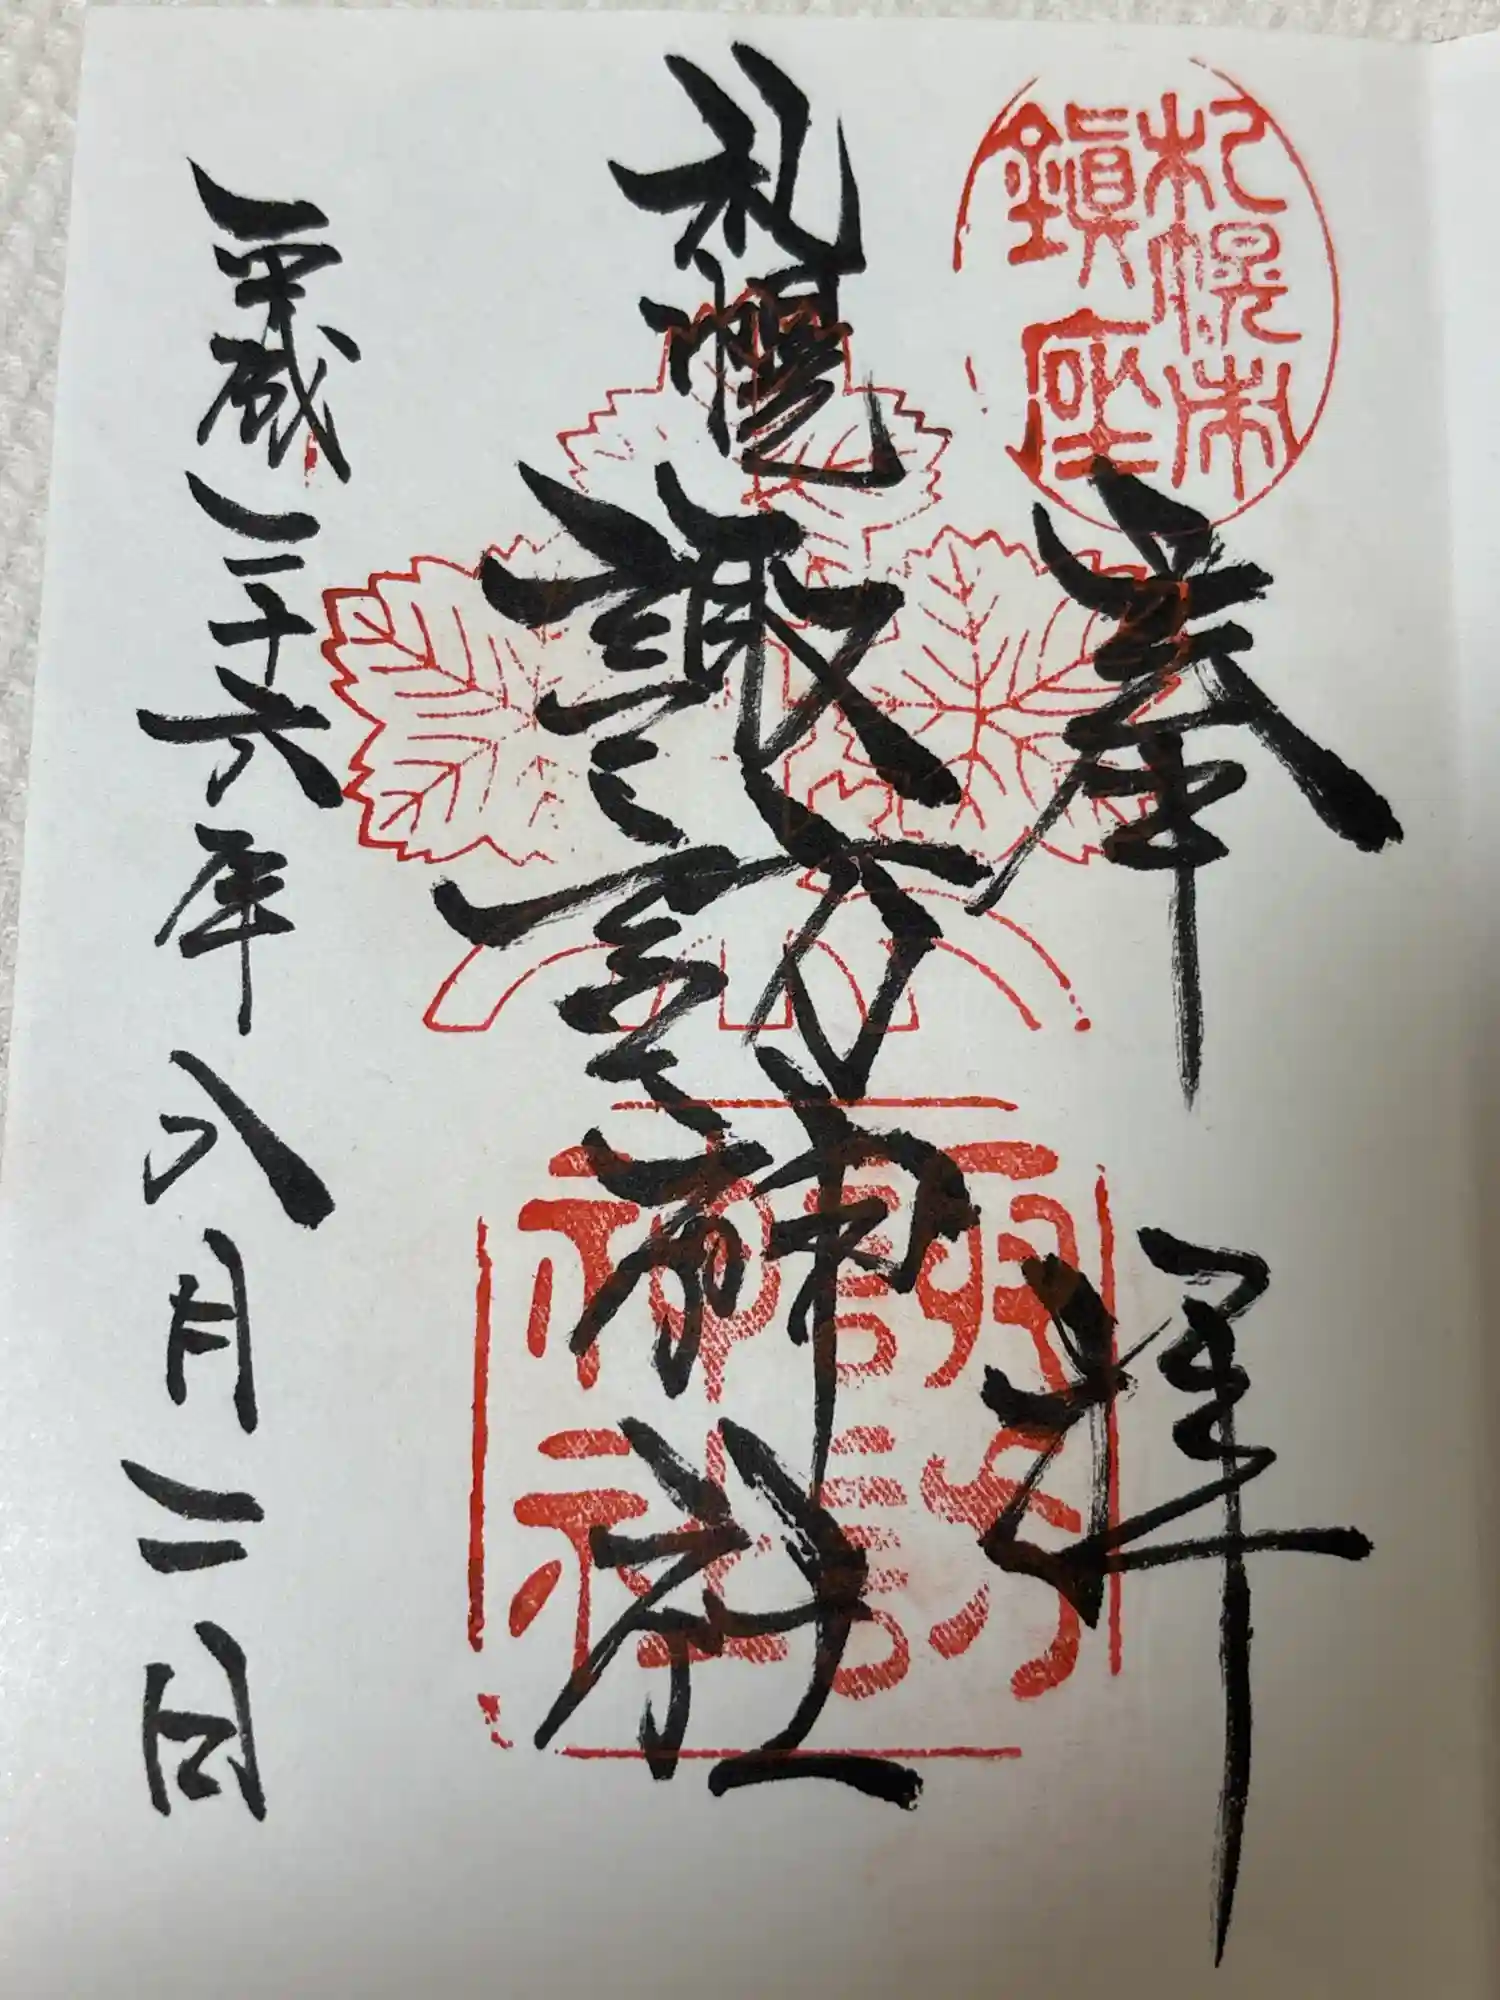 札幌市
鎮座
奉拝
札幌諏訪神社
諏訪
神社
平成二十六年八月二日